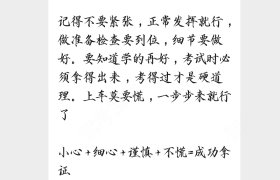 记得不要紧张，正常发挥就行，
做准备检查要到位，细节要做
好。要知道学的再好，考试时必
须拿得出来，考得过才是硬道
理。上车莫要慌，一步步来就行
了
小心+细心+谨慎+不慌=成功拿
证